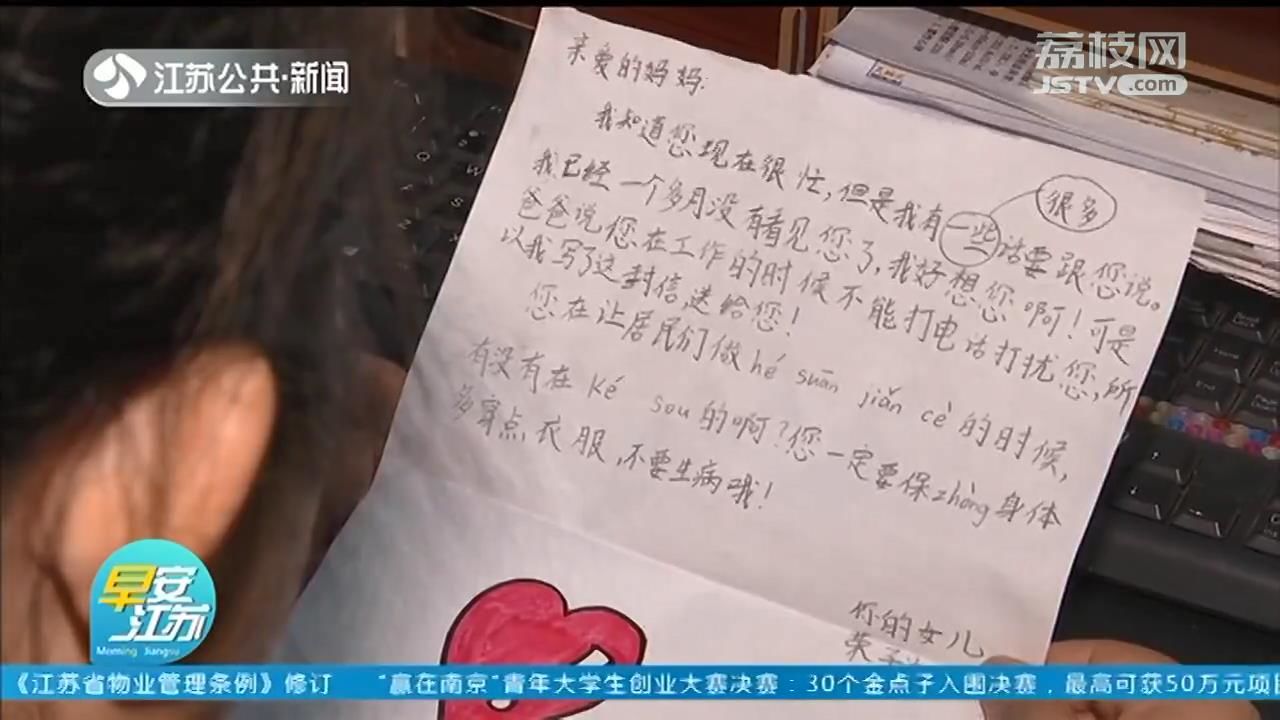 江苏公共·新闻
荔枝网
JSTV.com
亲爱的妈妈:
我知道您现在很忙,但是我有一些话要跟您说。
很多
我已经一个多月没有看见您了,我好想您啊!可是
爸爸说您在工作的时候不能打电话打扰您,所
以我写了这封信送给您!
您在让居民们做hé suān jiǎn cè的时候,
有没有在ké sou的啊?您一定要保zhòng身体
多穿点衣服,不要生病哦!
你的女儿
早安
江苏
Morning Jiangsu
《江苏省物业管理条例》修订 “赢在南京”青年大学生创业大赛决赛:30个金点子入围决赛,最高可获50万元项目